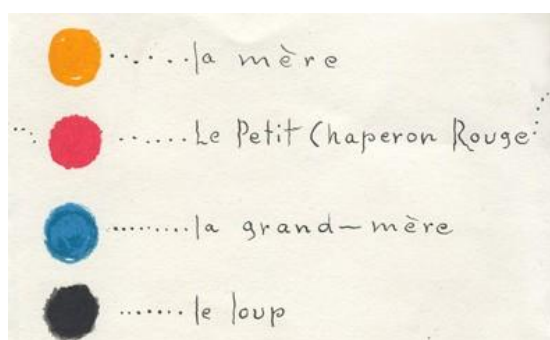 la mère
Le Petit Chaperon Rouge
la grand-mère
le loup